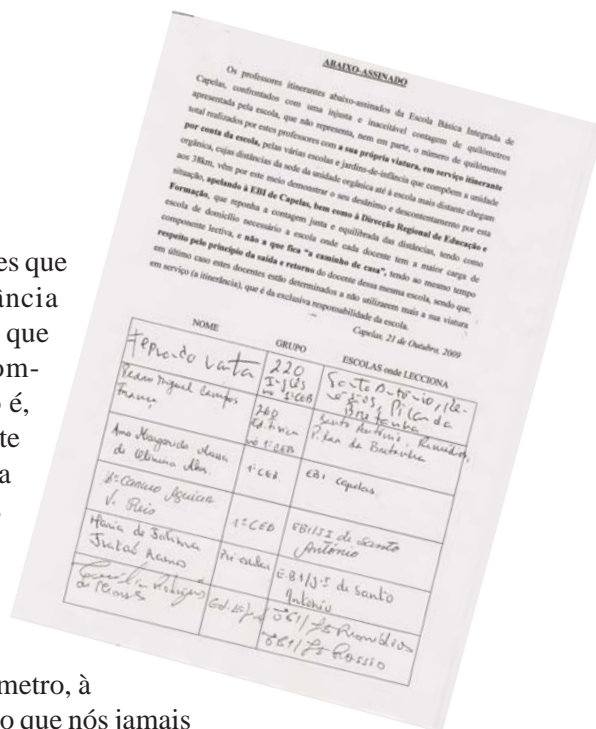 ABAIXO-ASSINADO
Os professores itinerantes abaixo-assinados da Escola Básica Integrada de
Capelas, confrontados com uma injusta e inaceitável contagem de quilómetros
apresentada pela escola, que não representa, nem em parte, o número de quilómetros
total realizados por estes professores com a sua própria viatura, em serviço itinerante
por conta da escola, pelas várias escolas e jardins-de-infância que compõem a unidade
orgânica, cujas distâncias da sede da unidade orgânica até à escola mais distante chegam
aos 38km, vêm por este meio demonstrar o seu desânimo e descontentamento por esta
situação, apelando à EBI de Capelas, bem como à Direcção Regional de Educação e
Formação, que reponha a contagem justa e equilibrada das distâncias, tendo como
escola de domicílio necessário a escola onde cada docente tem a maior carga de
componente lectiva, e não a que fica "a caminho de casa", tendo ao mesmo tempo
respeito pelo princípio da saída e retorno do docente dessa mesma escola, sendo que,
em último caso estes docentes estão determinados a não utilizarem mais a sua viatura
em serviço (a itinerância), que é da exclusiva responsabilidade da escola.
Capelas, 21 de Outubro, 2009
NOME GRUPO ESCOLAS onde LECCIONA
220
Inglês
1º CEB
Santo António, Re-
médios, Pilar da
Bretanha
Pedro Miguel Campos
França
260
Ed. Física
1º CEB
Santo António, Remédios,
Pilar da Bretanha
Ana Margarida
de Oliveira
1º CEB
EBI Capelas
Aguiar
V. Reis
1º CEB
EB1/JI de Santo
António
Maria de
Pré-escolar
EB1/JI de Santo
António
EB1/JI Remédios
EB1/JI
es que
ância
que
om-
o é,
te
a
metro, à
o que nós jamais